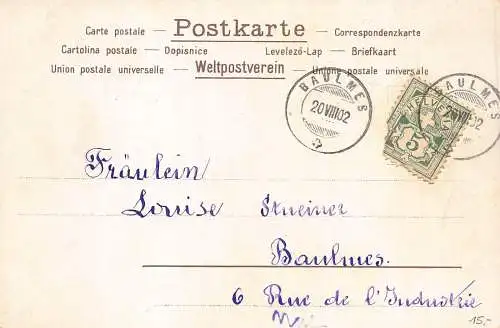 Carte postale — Postkarte — Correspondenzkarte
Cartolina postale — Dopisnice Levelező-Lap — Briefkaart
Union postale universelle — Weltpostverein — Unione postale universale
BAULMES
20 VIII 02
BAULMES
VIII 02
HELVETIA
5
Fräulein
Louise Steiner
Baulmes.
6 Rue de l'Industrie
15,-